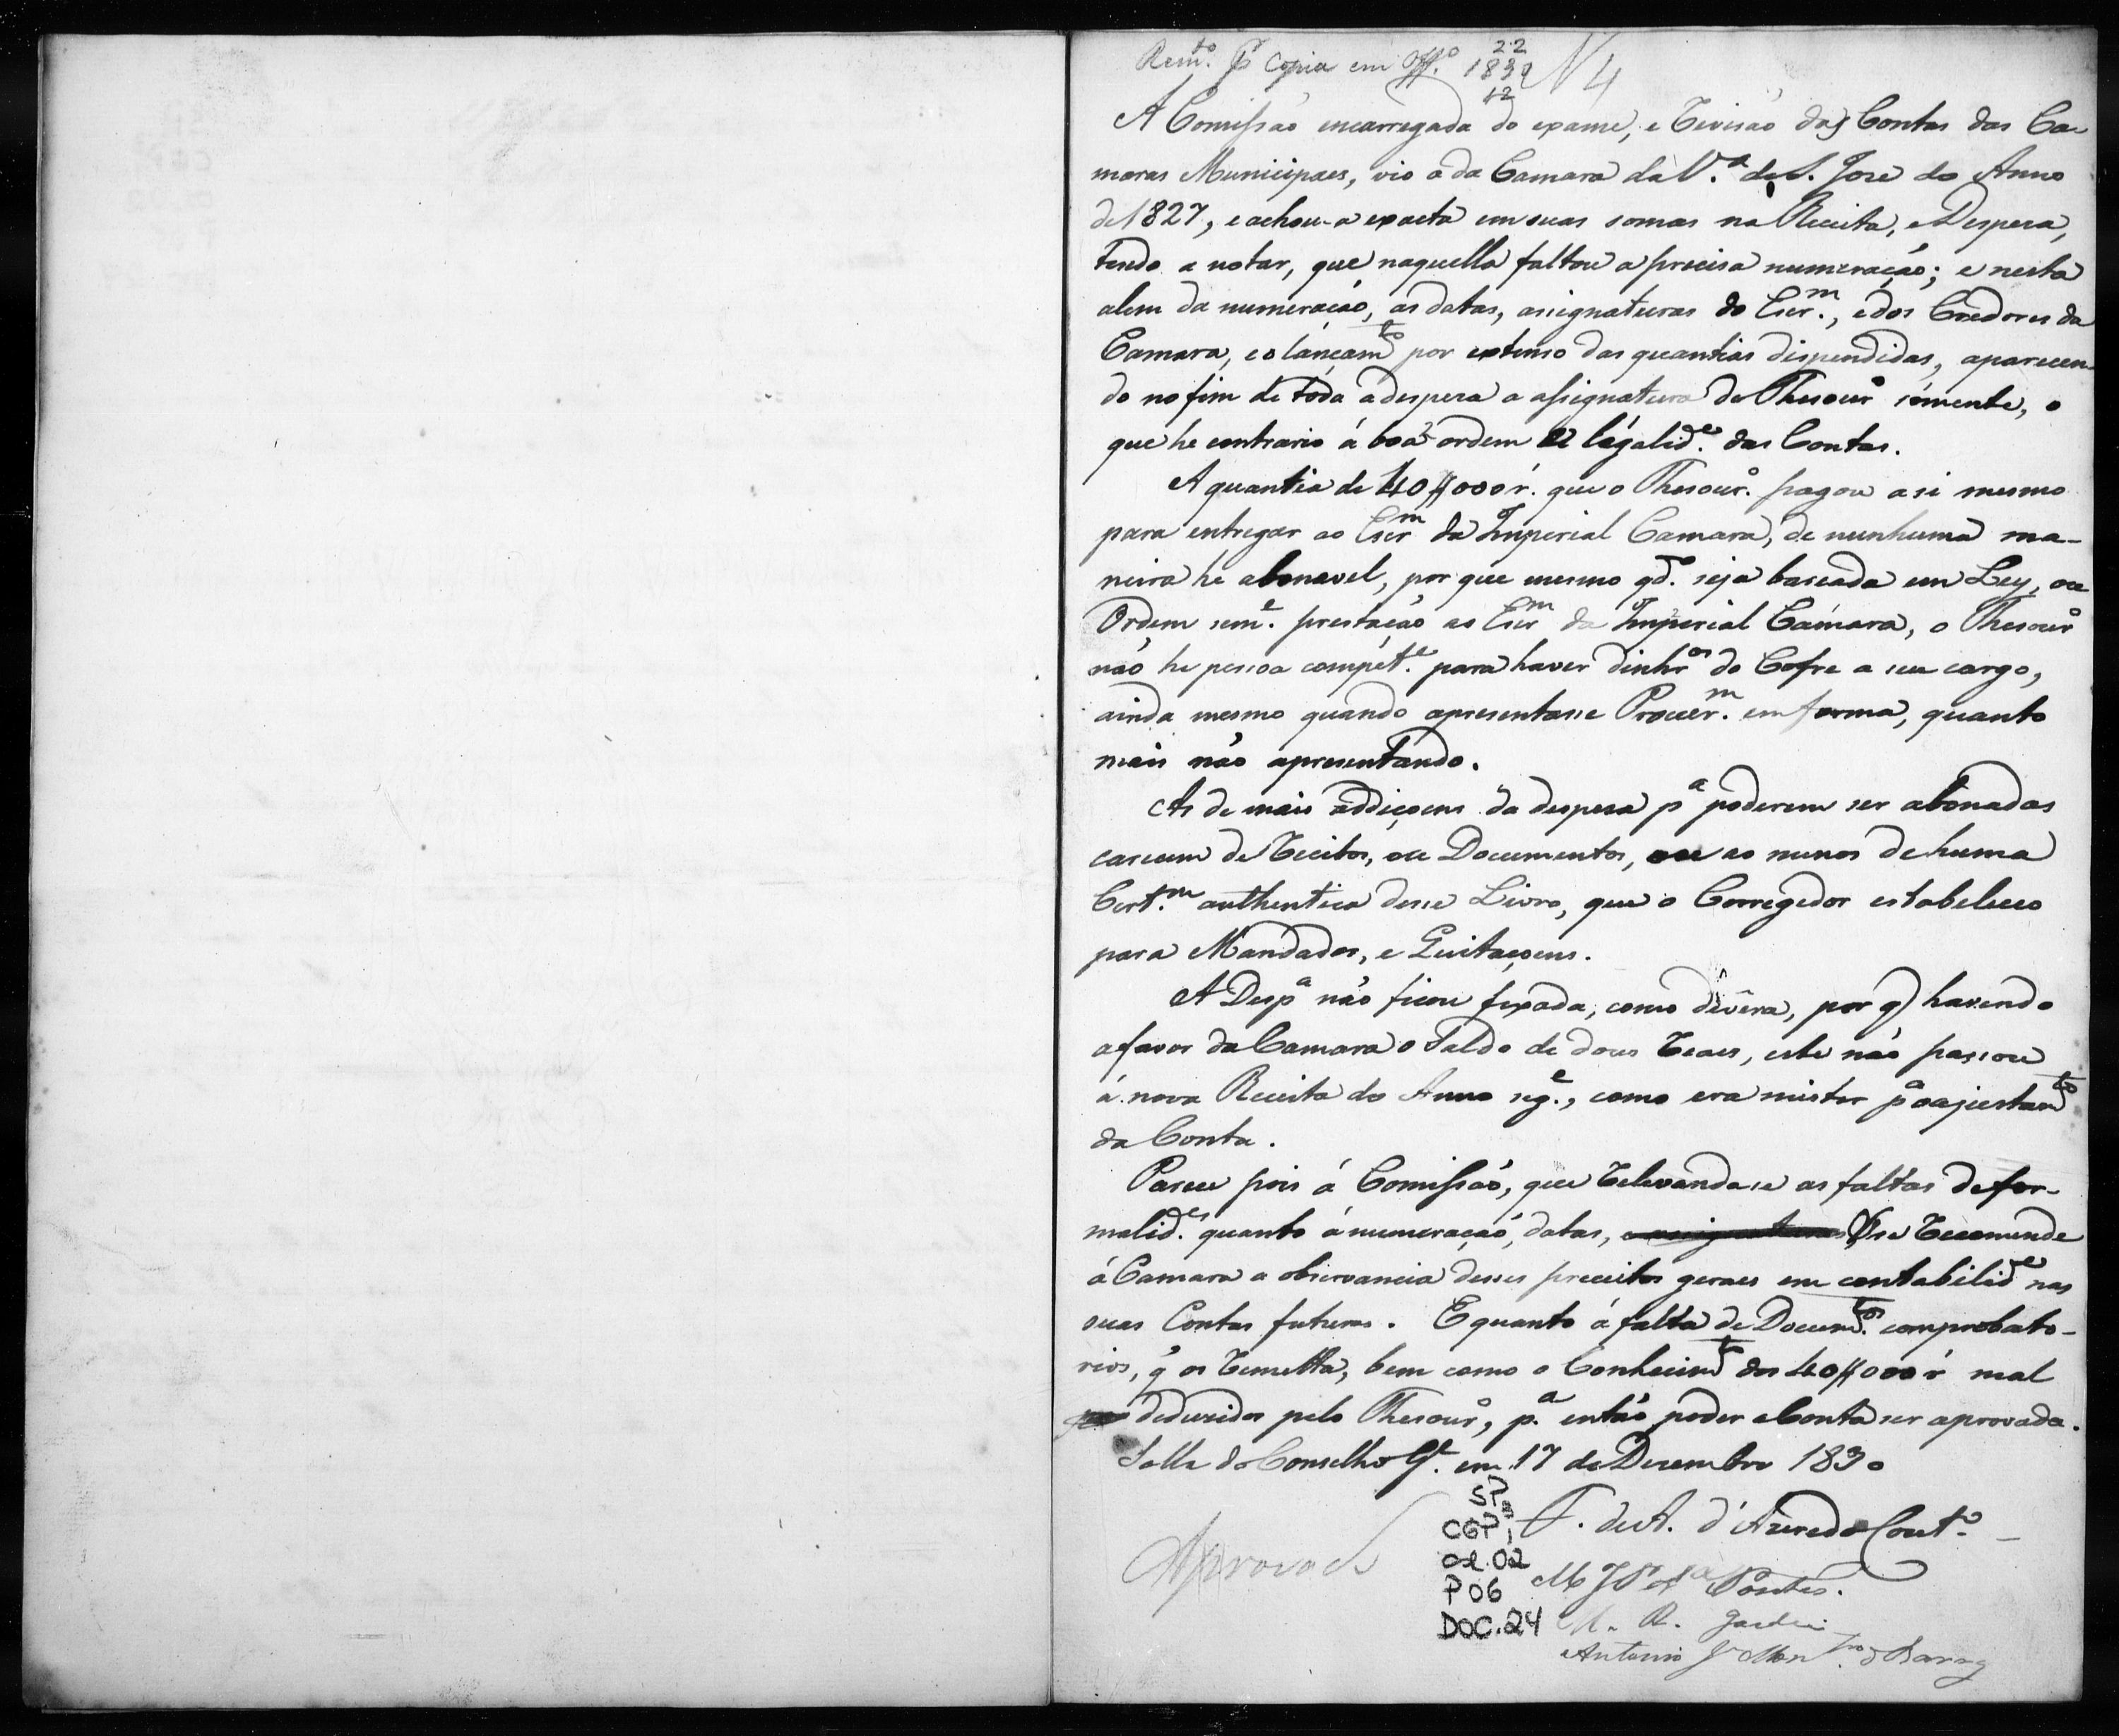 Rem.to P.r Copia em Off.o 22 12 1830 N 4
A Comissaõ encarregada do exame, e Revisaõ das Contas das Ca-
maras Municipaes, vio a da Camara da V.a de S. Jose do Anno
de 1827, e achou-a exacta em suas somas na Receita, e Despeza,
tendo a notar, que naquella faltou a precisa numeração; e nesta
alem da numeração, as datas, assignaturas do Escr.m, e dos Credores da
Camara, e o lançam.to por extenso das quantias dispendidas, aparecen-
do no fim de toda a despeza a assignatura do Thesour.o sómente, o
que he contrario á boa ordem e legalid.e das Contas.
A quantia de 40$000 r. que o Thesour.o pagou a si mesmo
para entregar ao Escr.m da Imperial Camara, de nenhuma ma-
neira he abonavel, por que mesmo qd.o seja baseada em Ley, ou
Ordem sem.e prestação ao Escr.m da Imperial Camara, o Thesour.o
não he pessoa compet.e para haver dinhr.os do Cofre a seu cargo,
ainda mesmo quando apresentasse Procur.m em forma, quanto
mais não apresentando.
As de mais addiçoens da despeza p.a poderem ser abonadas
carecem de Recibos, ou Documentos, ou ao menos de huma
Cert.m authentica desse Livro, que o Corregedor estabeleceo
para Mandados, e Quitaçoens.
A Desp.a não ficou fexada, como devêra, por q havendo
a favor da Camara o Saldo de dous Reaes, este não passou
á nova Receita do Anno seg.e, como era mister p.a o ajustam.to
da Conta.
Parece pois á Comissaõ, que relevando-se as faltas de for-
malid.es quanto á numeração, datas, e assignaturas se recomende
á Camara a observancia desses preceitos geraes em contabilid.e nas
suas Contas futuras. E quanto á falta de Docum.tos comprobato-
rios, q os remetta, bem como o Conhecim.to dos 40$000 r mal
deduzidos pelo Thesour.o, p.a então poder a Conta ser aprovada.
Salla do Conselho G.l em 17 de Dezembro 1830
F. de A. d'Azeredo Cout.o
Aprovado
SP,
CGP1,
cx.02
P06
DOC.24
Pontes.
M. R. Jardim
Antonio J. Montr.o de Barros